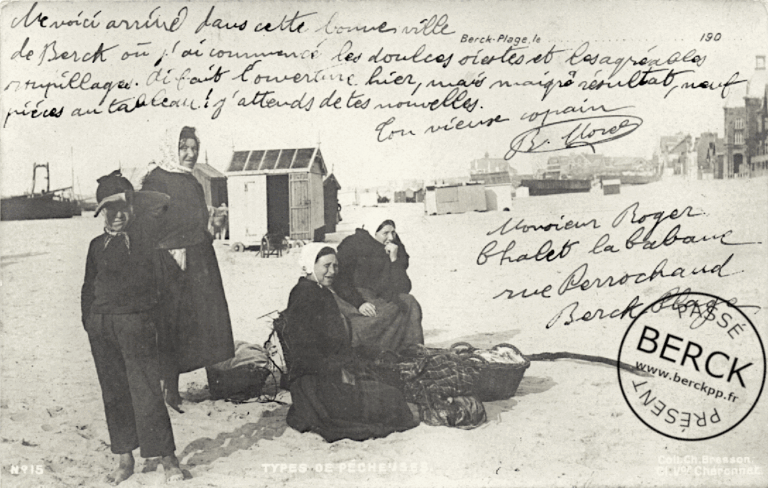 Me voici arrivé dans cette bonne ville
Berck-Plage, le 190
de Berck où j'ai commencé les doulces siestes et les agréables
roupillages. Ai fait l'ouverture hier, mais maigre résultat, neuf
pièces au tableau! j'attends de tes nouvelles.
Ton vieux copain
B. Morel
Monsieur Roger
Chalet la Cabane
rue Perrochaud
Berck Plage
PASSÉ
BERCK
www.berckpp.fr
PRÉSENT
Nº15
TYPES DE PÊCHEUSES
Coll. Ch. Bresson.
Cl. Vor Charconnet.